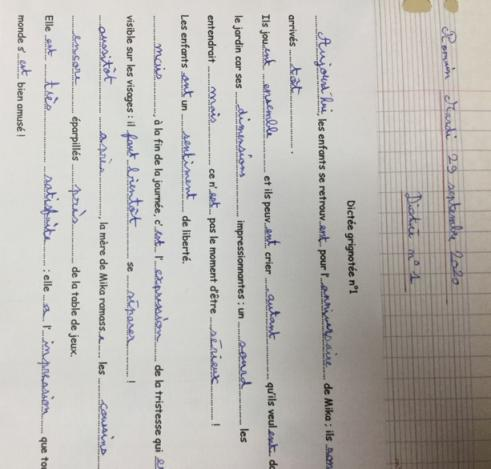 Romain Mardi 29 septembre 2020
Dictée n°1
Dictée grignotée n°1
Aujourd'hui, les enfants se retrouvent pour l'anniversaire de Mika ; ils
arrivés tôt.
Ils jouent ensemble et ils peuvent crier autant qu'ils veulent
le jardin car ses dimensions impressionnantes ; un sourd les
entendrait mais ce n'est pas le moment d'être sérieux !
Les enfants ont un sentiment de liberté.
mais, à la fin de la journée, c'est l'expression de la tristesse qui
visible sur les visages : il faut bientôt se séparer !
aussitôt après, la mère de Mika ramasse les
éparpillés près de la table de jeux.
Elle est très satisfaite : elle a l'impression que
monde s'est bien amusé !